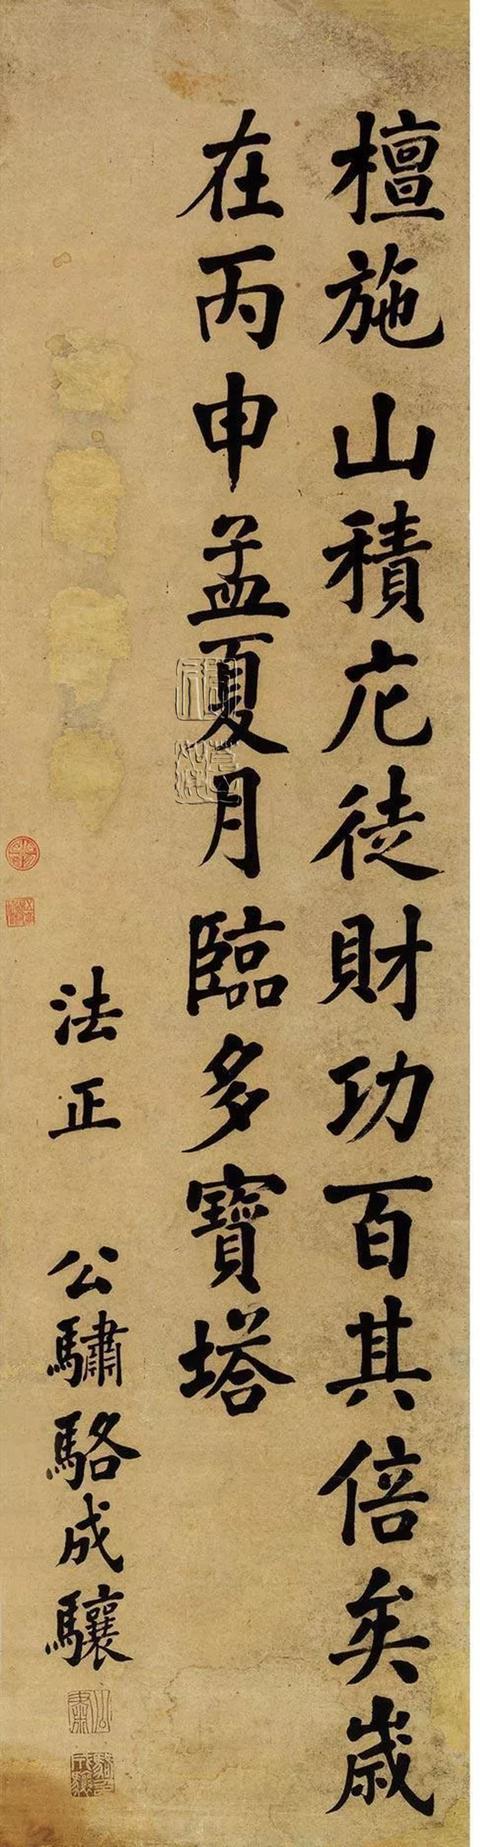 檀施山積庀徒財功百其倍矣歲
在丙申孟夏月臨多寶塔
法正 公驌駱成驤